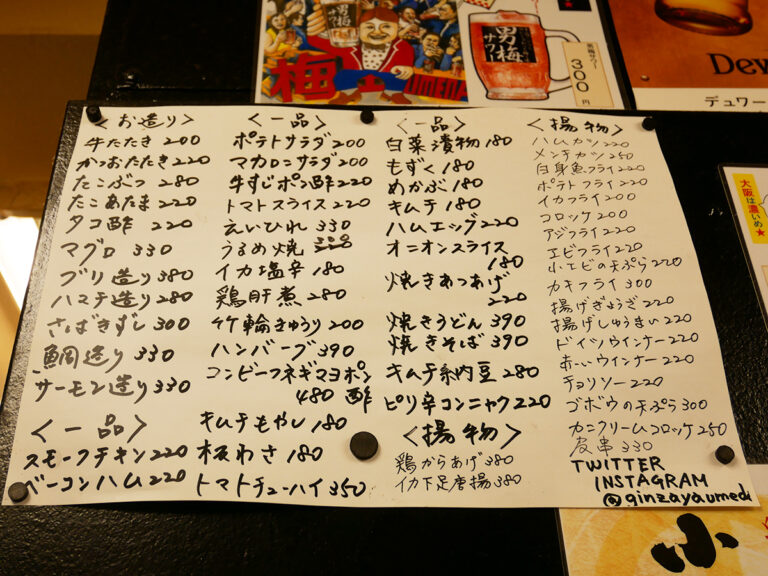 男梅
サワー
梅
UMEDA
300円
Dew
デュワー
大阪は濃いめ★
<お造り>
牛たたき 200
かつおたたき 220
たこぶつ 280
たこあたま 220
タコ酢 220
マグロ 330
ブリ造り 380
ハマチ造り 280
さばきずし 300
鯛造り 330
サーモン造り 330
<一品>
スモークチキン 220
ベーコンハム 220
<一品>
ポテトサラダ 200
マカロニサラダ 200
牛すじポン酢 220
トマトスライス 220
えいひれ 330
うるめ焼 300
イカ塩辛 180
鶏肝煮 280
竹輪きゅうり 200
ハンバーグ 390
コンビーフネギマヨポン酢
480
キムチもやし 180
板わさ 180
トマトチューハイ 350
<一品>
白菜漬物 180
もずく 180
めかぶ 180
キムチ 180
ハムエッグ 220
オニオンスライス
180
焼きあつあげ
220
焼きうどん 390
焼きそば 390
キムチ納豆 280
ピリ辛コンニャク 220
<揚物>
鶏からあげ 380
イカ下足唐揚 380
<揚物>
ハムカツ 220
メンチカツ 250
白身魚フライ 220
ポテトフライ 220
イカフライ 200
コロッケ 200
アジフライ 220
エビフライ 220
小エビの天ぷら 220
カキフライ 300
揚げぎょうざ 220
揚げしゅうまい 220
ドイツウインナー 220
赤いウインナー 220
チョリソー 220
ゴボウの天ぷら 300
カニクリームコロッケ 250
皮串 330
TWITTER
INSTAGRAM
@ginzayaumeda
小